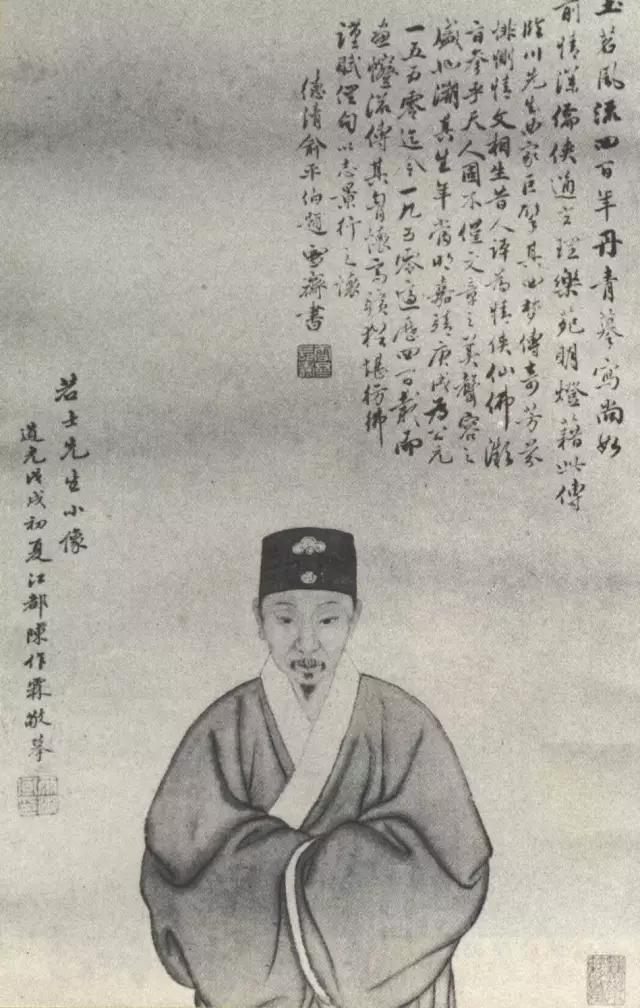 玉茗風流四百年丹青摹寫尚如
前情深儒俠通空理樂苑明燈藉此傳
臨川先生曲家巨擘其四夢傳奇芳芬
悱惻情文相生昔人評為情俠仙佛
參乎天人固不僅文章之美聲容之
盛也溯其生年當明嘉靖庚戌為公元
一五五零迄今一九五零適歷四百載而
畫流傳其胷懷高曠猶堪彷彿
謹賦俚句以志景行之懷
德清俞平伯題雪齋書
若士先生小像
道光戊戌初夏江都陳作霖敬摹